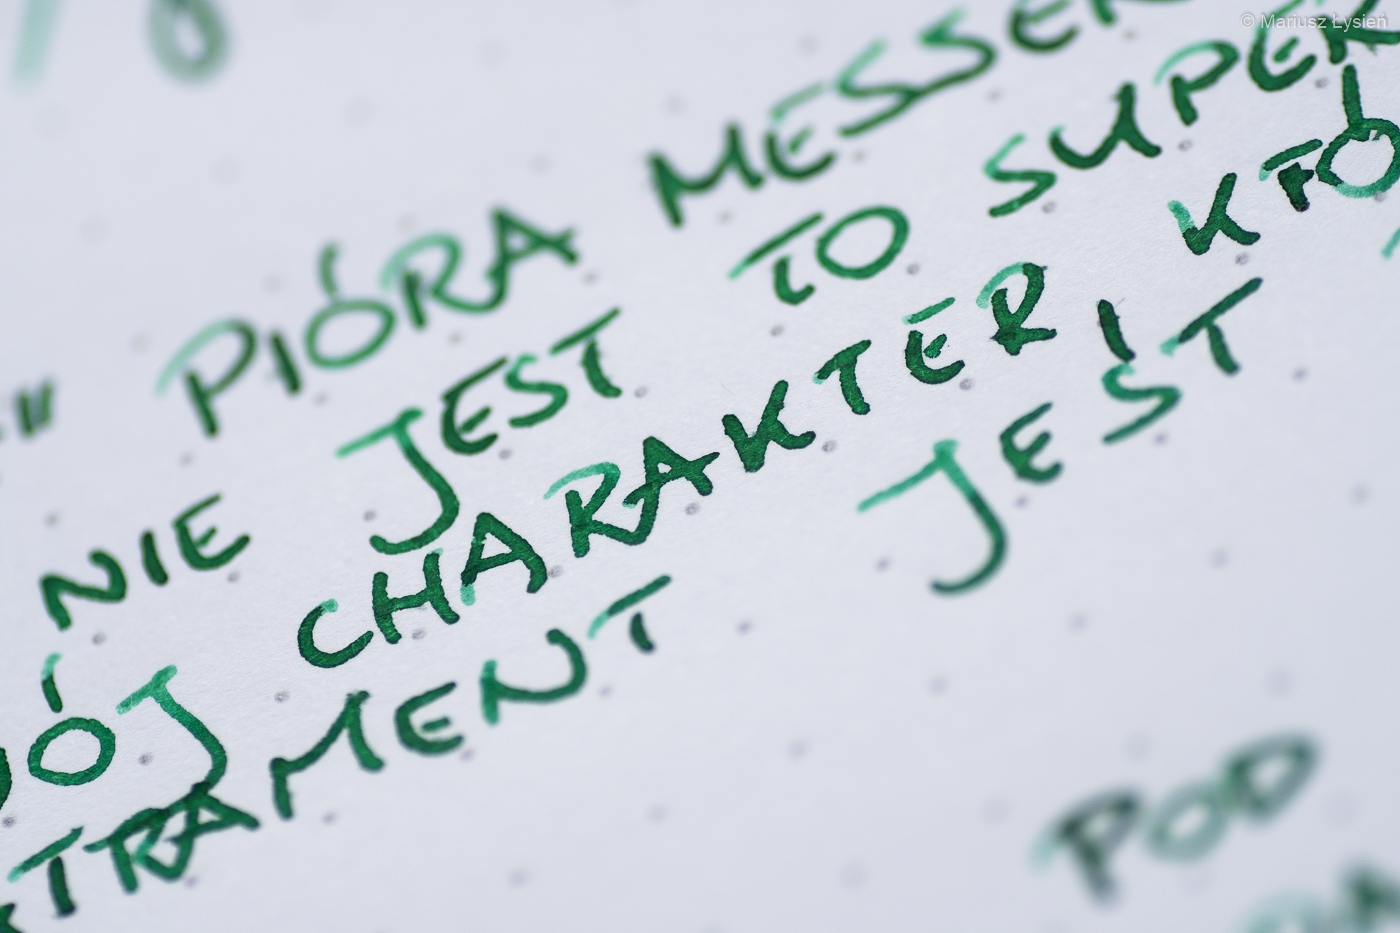 © Mariusz Łysień
" PIÓRA MESSE
NIE JEST TO SUPER
ÓJ CHARAKTER KTÓ
TRAMENT JEST
POD